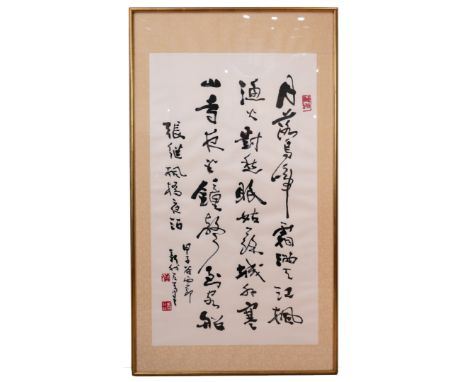 月落烏啼霜滿天江楓
漁火對愁眠姑蘇城外寒
山寺夜半鐘聲到客船
張繼楓橋夜泊
甲子